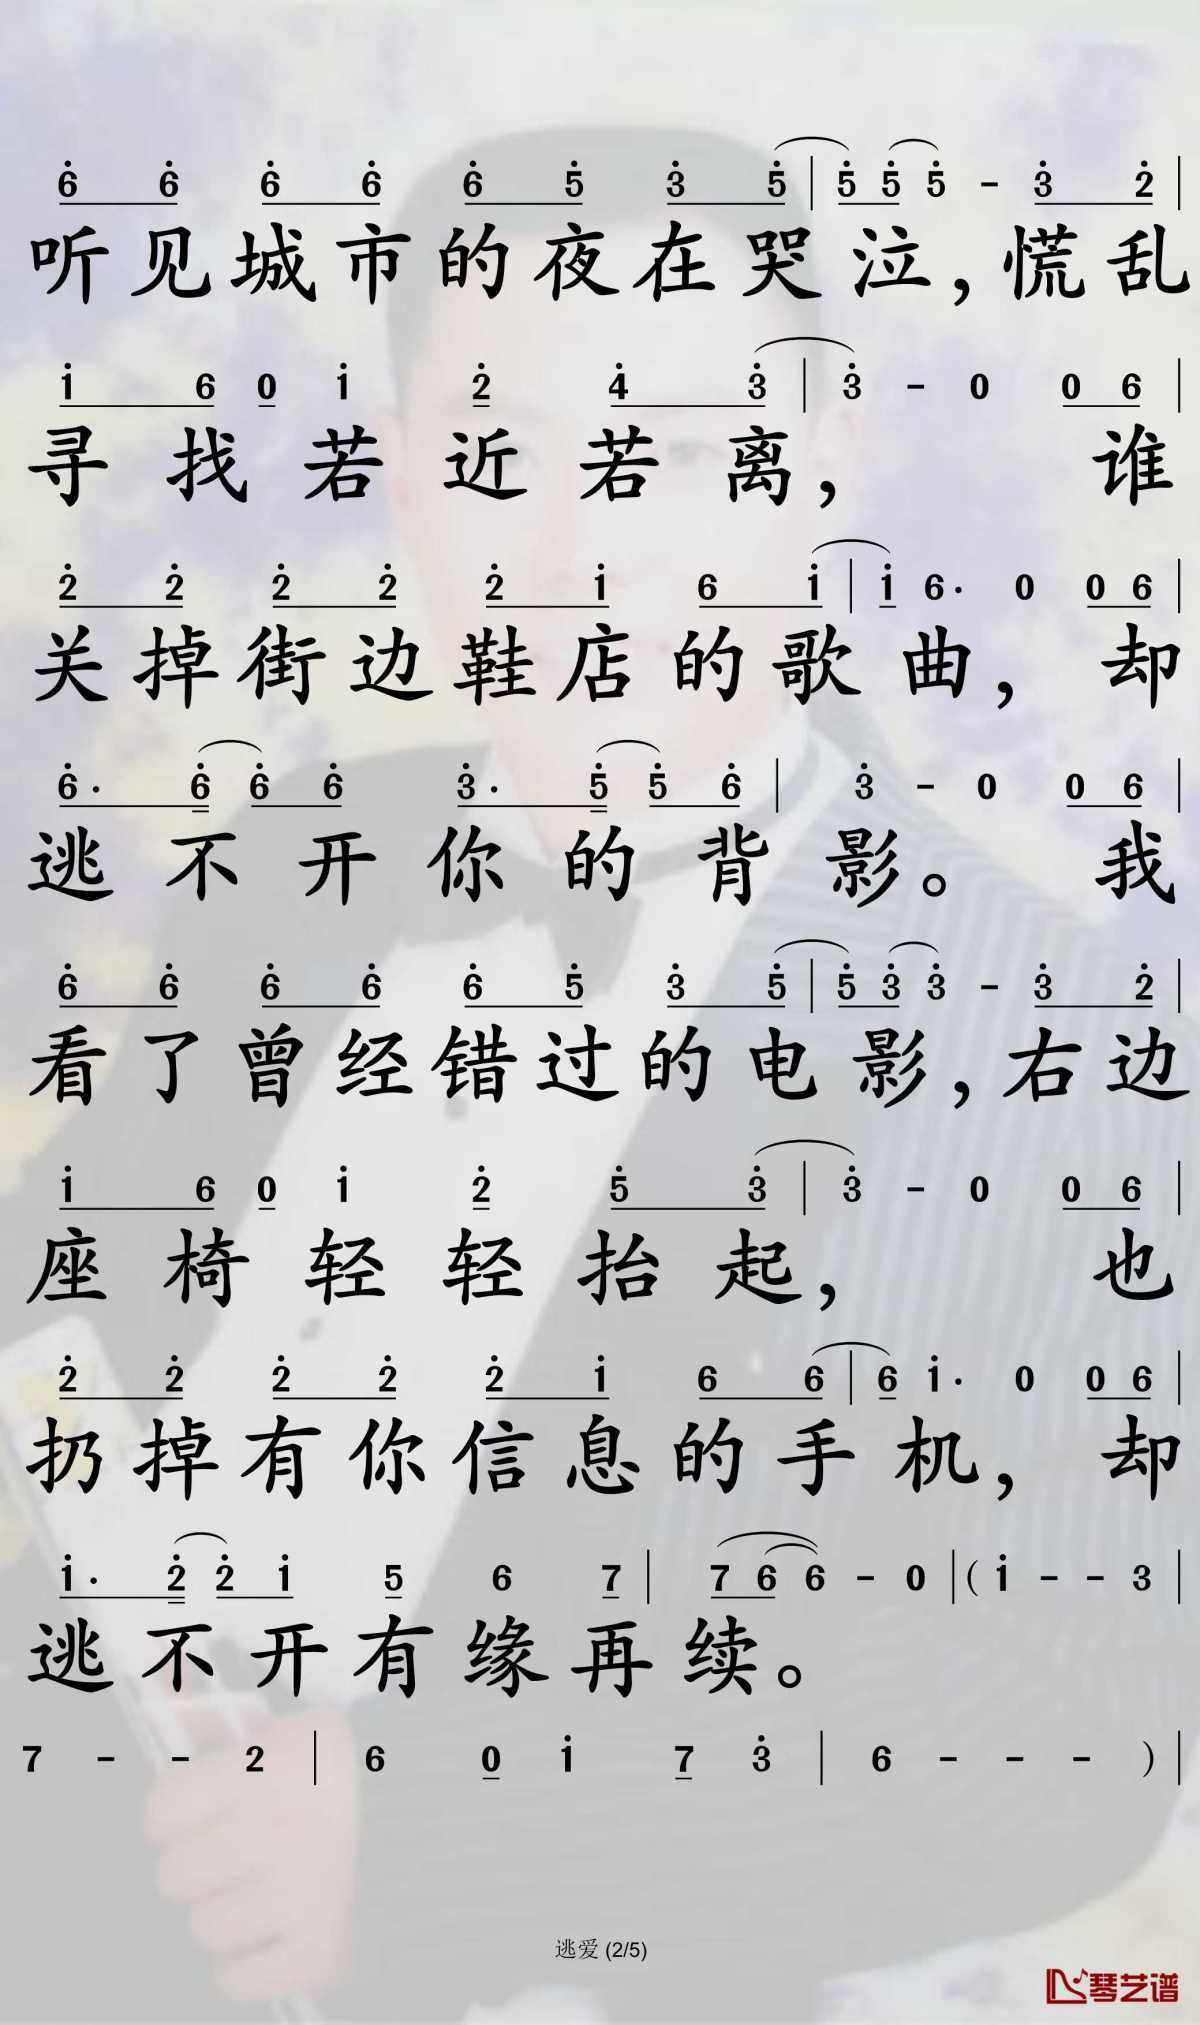 6̇ 6̇ 6̇ 6̇ 6̇ 5̇ 3̇ 5̇ | 5̇ 5̇ 5̇ - 3̇ 2̇ |
听见城市的夜在哭泣,慌乱
1̇ 6 0 1̇ 2̇ 4̇ 3̇ | 3̇ - 0 0 6 |
寻找若近若离, 谁
2̇ 2̇ 2̇ 2̇ 2̇ 1̇ 6 1̇ | 1̇ 6· 0 0 6 |
关掉街边鞋店的歌曲,却
6̇· 6̇ 6̇ 6̇ 3̇· 5̇ 5̇ 6̇ | 3̇ - 0 0 6 |
逃不开你的背影。 我
6̇ 6̇ 6̇ 6̇ 6̇ 5̇ 3̇ 5̇ | 5̇ 3̇ 3̇ - 3̇ 2̇ |
看了曾经错过的电影,右边
1̇ 6 0 1̇ 2̇ 5̇ 3̇ | 3̇ - 0 0 6 |
座椅轻轻抬起, 也
2̇ 2̇ 2̇ 2̇ 2̇ 1̇ 6 6 | 6 1̇· 0 0 6 |
扔掉有你信息的手机,却
1̇· 2̇ 2̇ 1̇ 5 6 7 | 7 6 6 - 0 | (1̇ - - 3 |
逃不开有缘再续。
7 - - 2 | 6 0 1̇ 7 3̇ | 6 - - - ) |
逃爱 (2/5)
琴艺谱